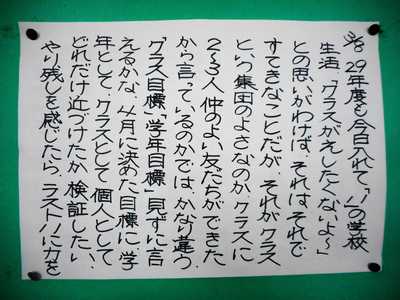 3/8 29年度も今日入れて「11」の学校
生活「クラスがえしたくないよ〜」
との思いがわけば、それはそれで
すてきなことだが、それがクラス
という集団のよさなのか。クラスに
2〜3人仲のよい友だちができた
から言っているのでは、かなり違う。
「クラス目標」「学年目標」見ずに言
えるかな。4月に決めた目標に、学
年として、クラスとして、個人として
どれだけ近づけたか、検証したい。
やり残しを感じたら、ラスト11に力を